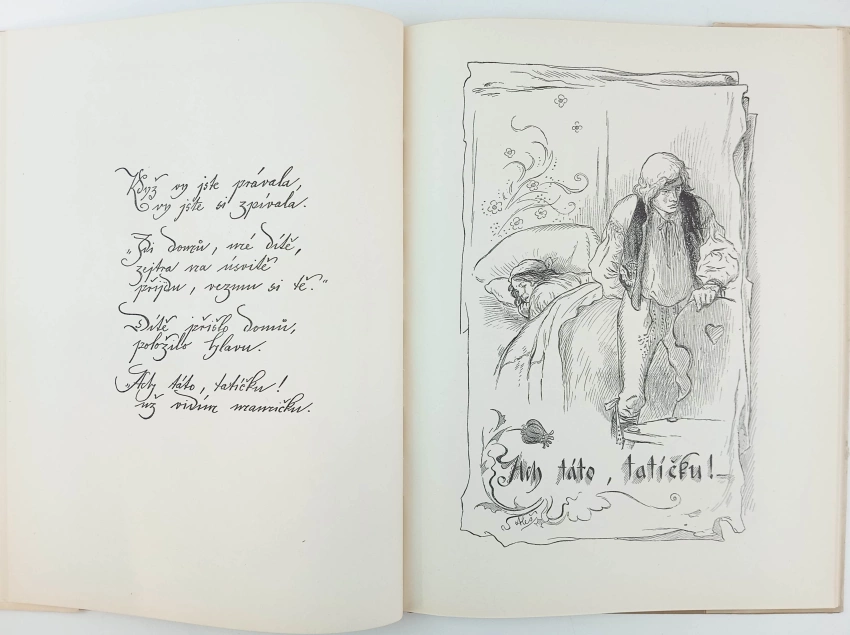 Když vy jste právala,
vy jste si zpívala.
„Jdi domů, mé dítě,
zejtra na úsvitě
přijdu, vezmu si tě.“
Dítě přišlo domů,
položilo hlavu.
„Ach táto, tatíčku!
už vidím mamičku.
Ach táto, tatíčku!